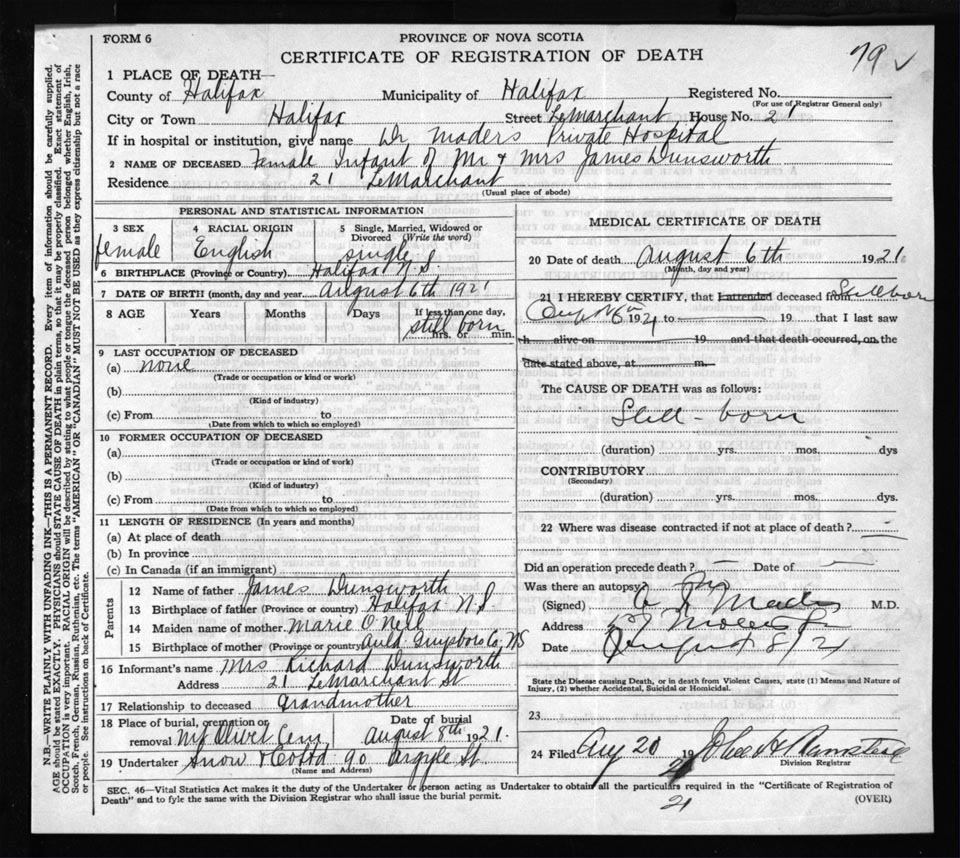 FORM 6
PROVINCE OF NOVA SCOTIA
CERTIFICATE OF REGISTRATION OF DEATH
79 ✓
1 PLACE OF DEATH—
County of Halifax Municipality of Halifax Registered No.
(For use of Registrar General only)
City or Town Halifax Street LeMarchant House No. 21
If in hospital or institution, give name Dr Maders Private Hospital
2 NAME OF DECEASED Female Infant of Mr & Mrs James Dunsworth
Residence 21 LeMarchant
(Usual place of abode)
PERSONAL AND STATISTICAL INFORMATION
3 SEX 4 RACIAL ORIGIN 5 Single, Married, Widowed or Divorced (Write the word)
female English single
6 BIRTHPLACE (Province or Country) Halifax N.S.
7 DATE OF BIRTH (month, day and year) August 6th 1921
8 AGE Years Months Days If less than one day,
still born
hrs. or min.
9 LAST OCCUPATION OF DECEASED
(a) none
(Trade or occupation or kind of work)
(b)
(Kind of industry)
(c) From to
(Date from which to which so employed)
10 FORMER OCCUPATION OF DECEASED
(a)
(Trade or occupation or kind of work)
(b)
(Kind of industry)
(c) From to
(Date from which to which so employed)
11 LENGTH OF RESIDENCE (In years and months)
(a) At place of death
(b) In province
(c) In Canada (if an immigrant)
Parents
12 Name of father James Dunsworth
13 Birthplace of father (Province or country) Halifax N.S.
14 Maiden name of mother Marie O'Neil
15 Birthplace of mother (Province or country) Auld Guysboro Co, NS
16 Informant's name Mrs Richard Dunsworth
Address 21 LeMarchant St
17 Relationship to deceased grandmother
18 Place of burial, cremation or removal Mt Olivet Cem Date of burial August 8th 1921.
19 Undertaker Snow & Co Ltd 90 Argyle St.
(Name and Address)
MEDICAL CERTIFICATE OF DEATH
20 Date of death August 6th 1921
(Month, day and year)
21 I HEREBY CERTIFY, that I attended deceased from Stillborn
6th 1921 to 19 that I last saw
h alive on 19 and that death occurred, on the
date stated above, at m.
The CAUSE OF DEATH was as follows:
Still-born
(duration) yrs. mos. dys
CONTRIBUTORY
(Secondary)
(duration) yrs. mos. dys.
22 Where was disease contracted if not at place of death?
Did an operation precede death? — Date of —
Was there an autopsy? no
(Signed) Mader M.D.
Address
Date August 8/21
State the Disease causing Death, or in death from Violent Causes, state (1) Means and Nature of Injury, (2) whether Accidental, Suicidal or Homicidal.
23
24 Filed Aug 20 19 21
Division Registrar
21
SEC. 46—Vital Statistics Act makes it the duty of the Undertaker or person acting as Undertaker to obtain all the particulars required in the "Certificate of Registration of Death" and to fyle the same with the Division Registrar who shall issue the burial permit.
(OVER)
N.B.—WRITE PLAINLY WITH UNFADING INK—THIS IS A PERMANENT RECORD. Every item of information should be carefully supplied.
AGE should be stated EXACTLY. PHYSICIANS should STATE CAUSE OF DEATH in plain terms, so that it may be properly classified. Exact statement of
OCCUPATION is very important. RACIAL ORIGIN will be described by stating to what people or tongue the deceased person belonged whether English, Irish,
Scotch, French, German, Russian, Ruthenian, etc. The terms "AMERICAN" OR "CANADIAN" MUST NOT BE USED as they express citizenship but not a race
or people. See instructions on back of Certificate.